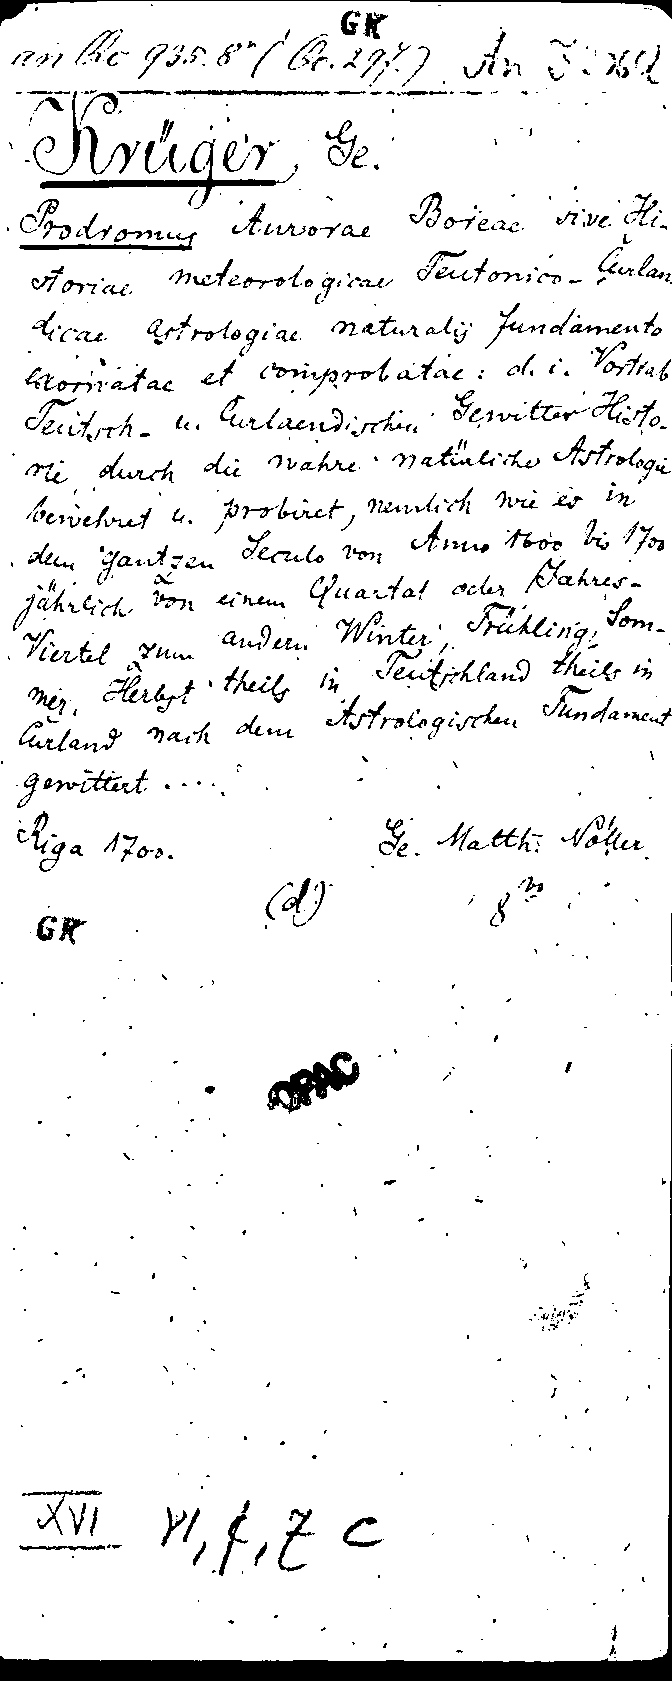 GK
an Bc 935.8° (Bc. 297.) An
Krüger, Ge.
Prodromus Aurorae Boreae sive Hi-
storiae meteorologicae Teutonico-Curlan
dicae astrologiae naturalis fundamento
exornatae et comprobatae: d. i. Vortrab
Teutsch- u. Curlaendischen Gewitter Histo-
rie durch die wahre natürliche Astrologie
bewehret u. probiret, nemlich wie es in
dem gantzen Seculo von Anno 1600 bis 1700
jährlich von einem Quartal oder Jahres-
Viertel zum andern Winter, Frühling, Som-
mer, Herbst theils in Teutschland theils in
Curland nach dem Astrologischen Fundament
gewittert ....
Riga 1700. Ge. Matth. Nöller
(d) 8vo
GK
OPAC
XVI VI, f, 7 C